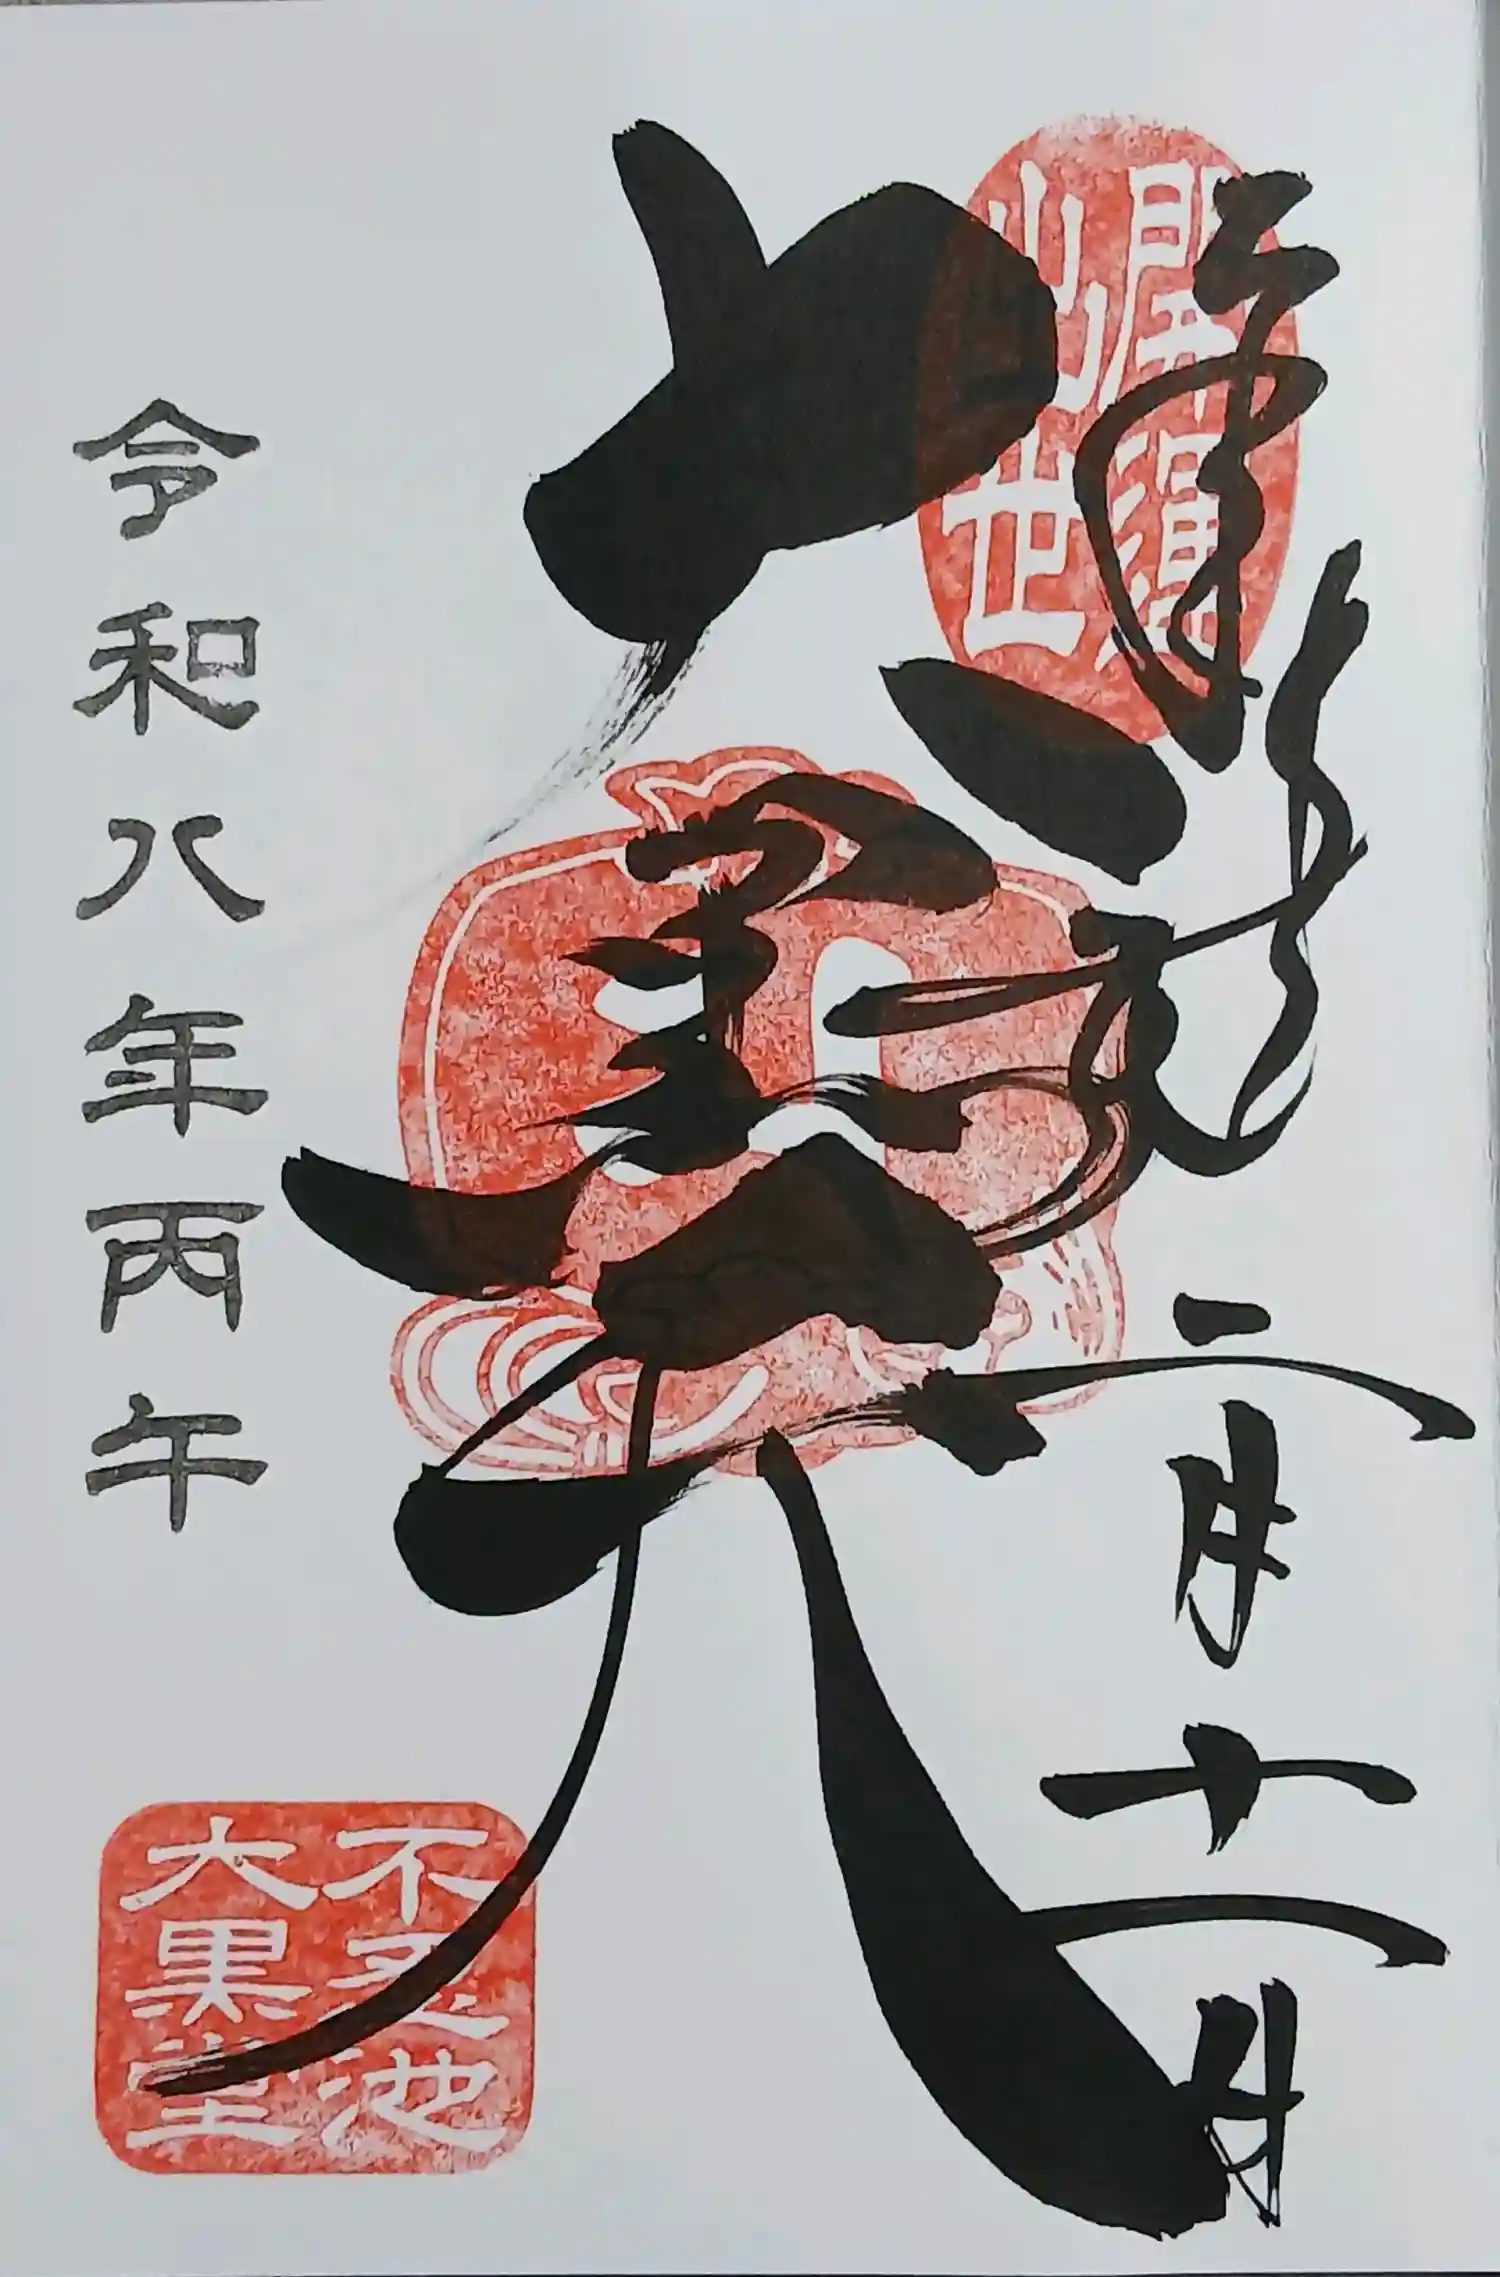 奉拝
二月十一日
開運
出世
大黒天
令和八年丙午
不忍池
大黒堂